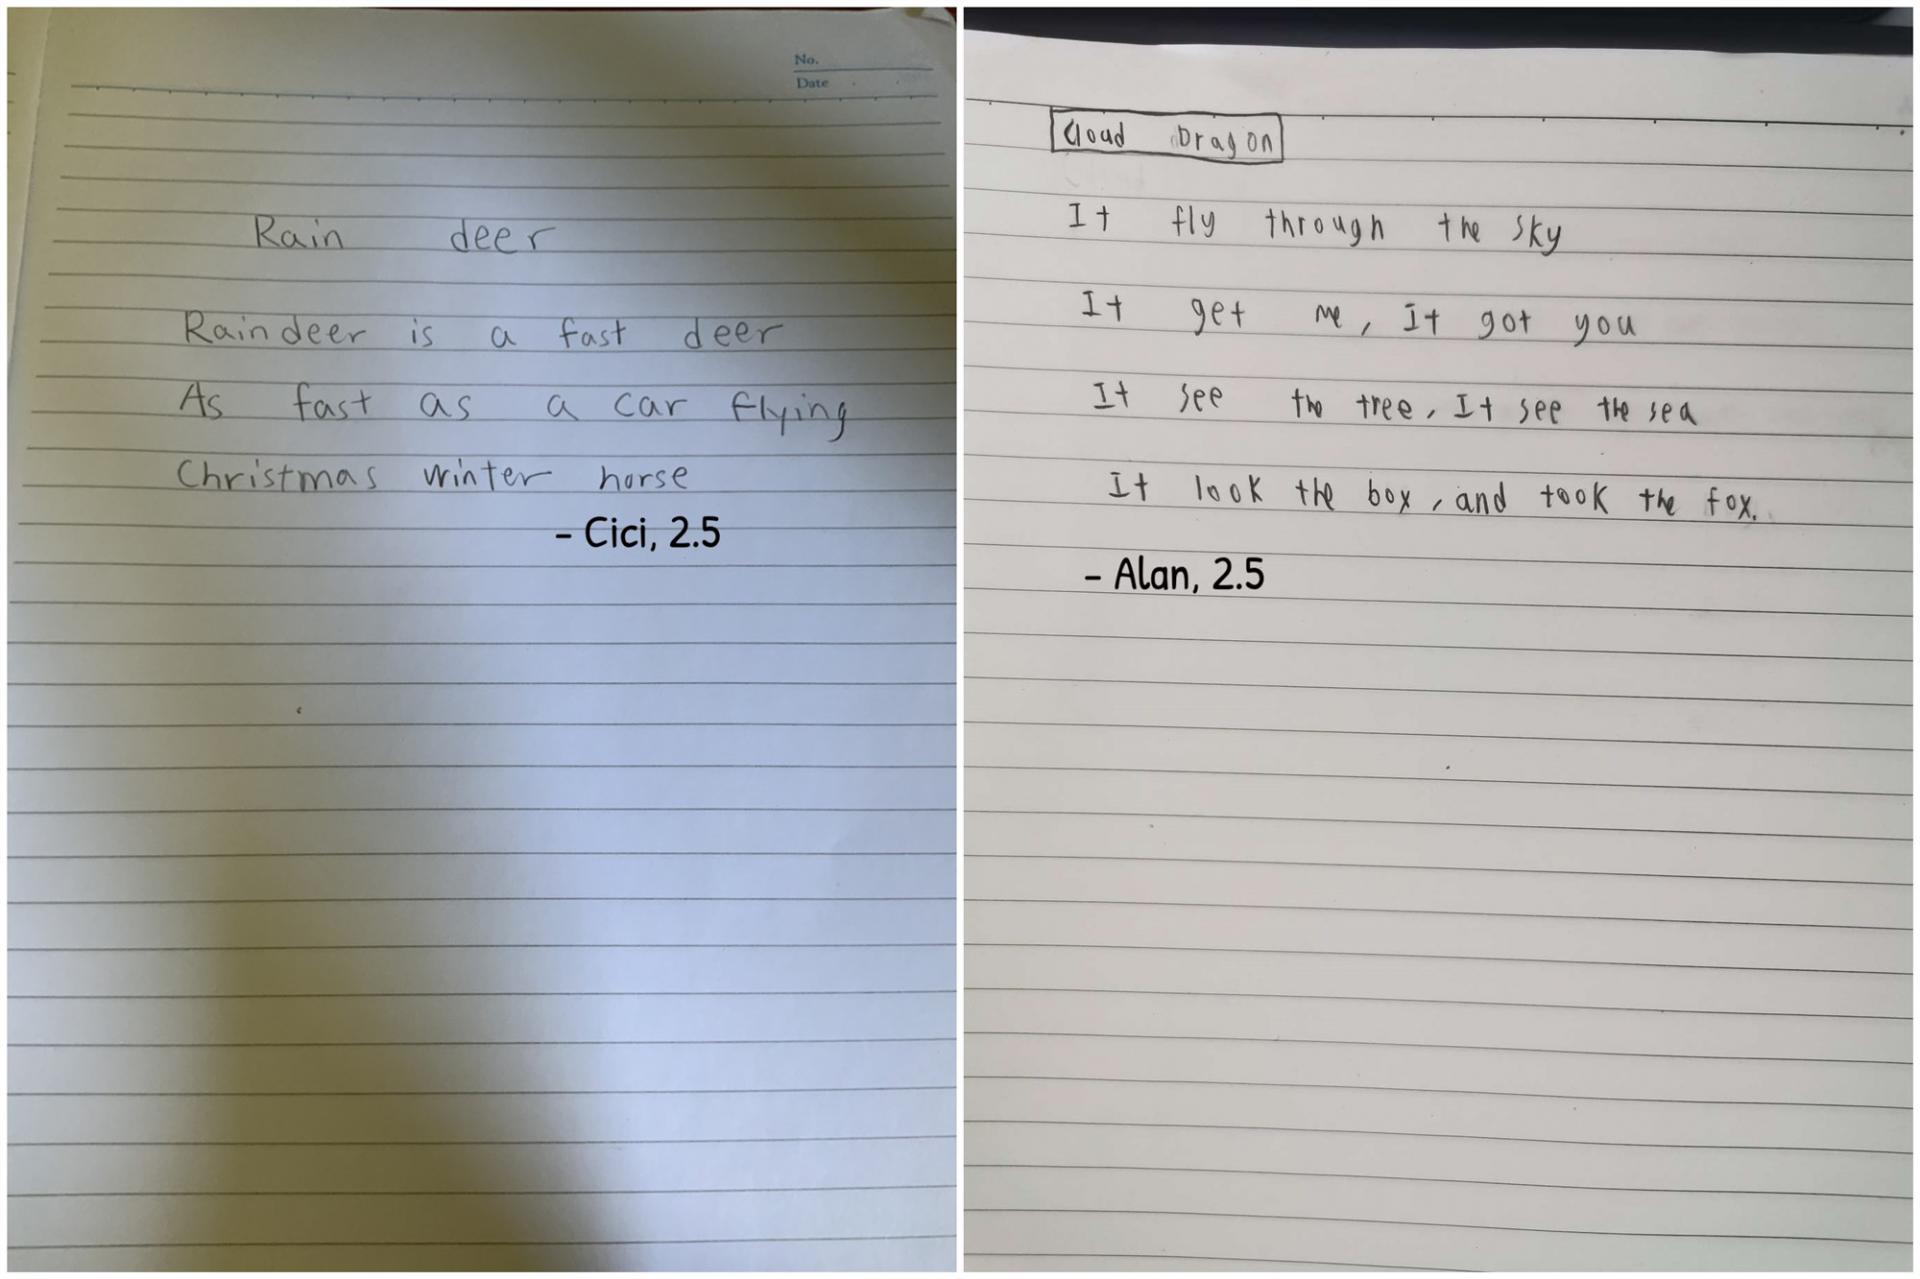 No.
Date
Rain deer
Raindeer is a fast deer
As fast as a car flying
Christmas winter horse
- Cici, 2.5
Cloud Dragon
It fly through the sky
It get me, It got you
It see the tree, It see the sea
It look the box, and took the fox.
- Alan, 2.5